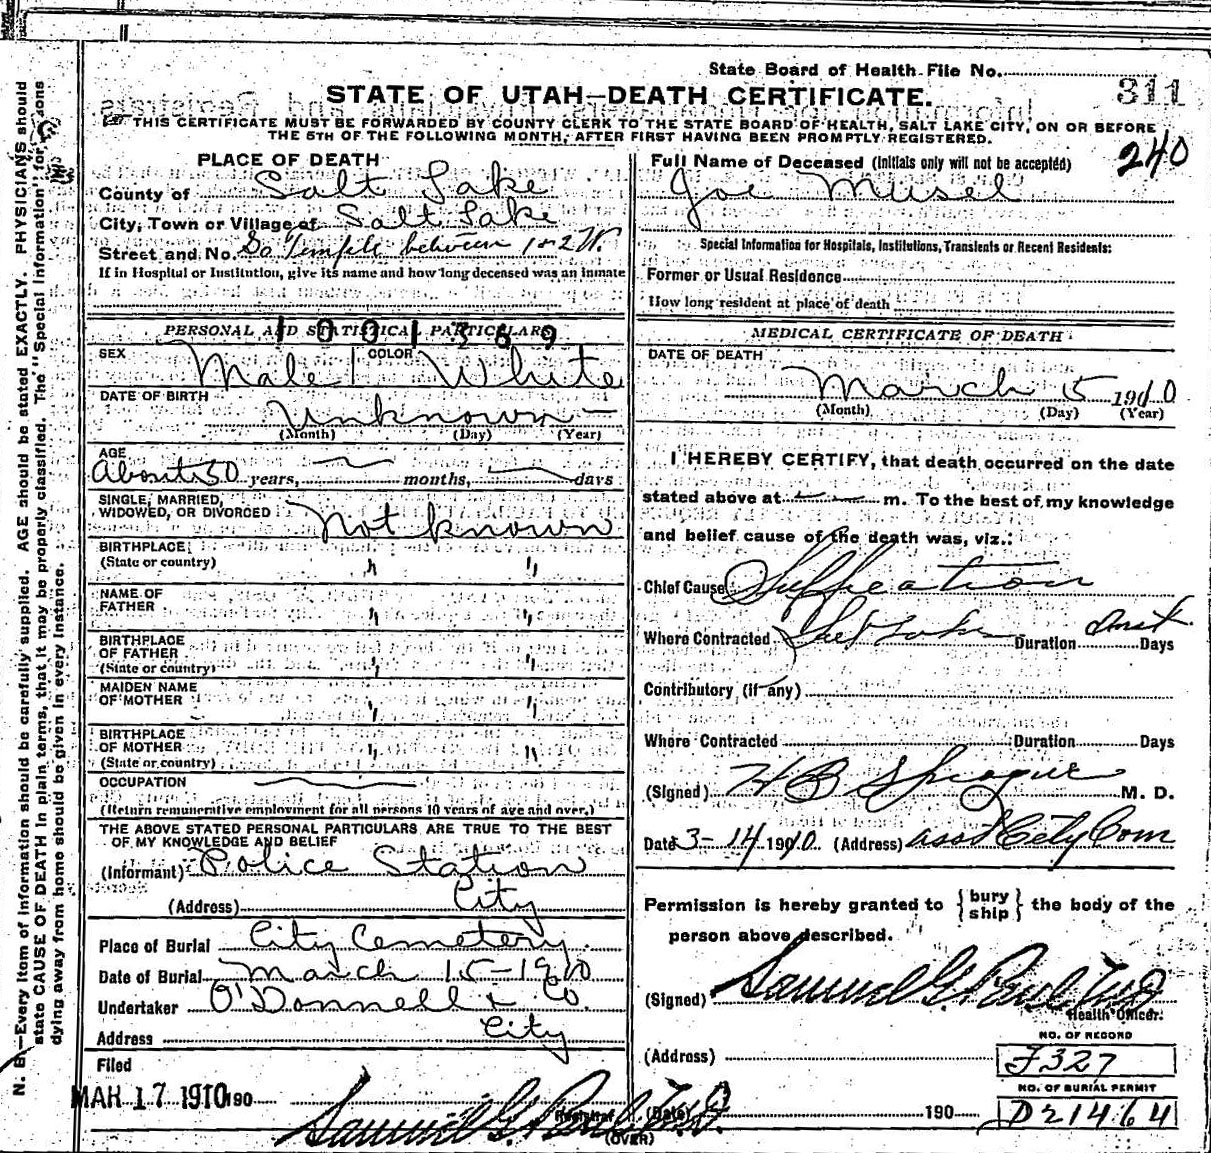 State Board of Health File No. 311
STATE OF UTAH—DEATH CERTIFICATE.
THIS CERTIFICATE MUST BE FORWARDED BY COUNTY CLERK TO THE STATE BOARD OF HEALTH, SALT LAKE CITY, ON OR BEFORE
THE 5TH OF THE FOLLOWING MONTH, AFTER FIRST HAVING BEEN PROMPTLY REGISTERED.
240
PLACE OF DEATH
County of Salt Lake
City, Town or Village of Salt Lake
Street and No. So Temple between 1 & 2 W.
If in Hospital or Institution, give its name and how long deceased was an inmate
PERSONAL AND STATISTICAL PARTICULARS
1001369
SEX Male COLOR White
DATE OF BIRTH Unknown
(Month) (Day) (Year)
AGE
About 50 years, months, days
SINGLE, MARRIED,
WIDOWED, OR DIVORCED Not known
BIRTHPLACE
(State or country) " "
NAME OF
FATHER " "
BIRTHPLACE
OF FATHER
(State or country) " "
MAIDEN NAME
OF MOTHER " "
BIRTHPLACE
OF MOTHER
(State or country) " "
OCCUPATION
(Return remunerative employment for all persons 10 years of age and over.)
THE ABOVE STATED PERSONAL PARTICULARS ARE TRUE TO THE BEST
OF MY KNOWLEDGE AND BELIEF
(Informant) Police Station
(Address) City
Place of Burial City Cemetery
Date of Burial March 15-1910
Undertaker O'Donnell & Co.
Address City
Filed
MAR 17 1910 190
Samuel G. Paul M.D.
Registrar
(OVER)
Full Name of Deceased (Initials only will not be accepted)
Joe Musel
Special Information for Hospitals, Institutions, Transients or Recent Residents:
Former or Usual Residence
How long resident at place of death
MEDICAL CERTIFICATE OF DEATH
DATE OF DEATH
March 5 1910
(Month) (Day) (Year)
I HEREBY CERTIFY, that death occurred on the date
stated above at m. To the best of my knowledge
and belief cause of the death was, viz.:
Chief Cause Suffocation
Where Contracted Salt Lake Duration Inst. Days
Contributory (if any)
Where Contracted Duration Days
(Signed) H B Sprague M. D.
Date 3-14 1910. (Address) asst City Com
Permission is hereby granted to {bury ship} the body of the
person above described.
(Signed) Samuel G. Paul M.D.
Health Officer.
(Address)
NO. OF RECORD
J327
NO. OF BURIAL PERMIT
(Date) 190 D21464
N. B.—Every item of information should be carefully supplied. AGE should be stated EXACTLY. PHYSICIANS should
state CAUSE OF DEATH in plain terms, that it may be properly classified. The "Special Information" for persons
dying away from home should be given in every instance.